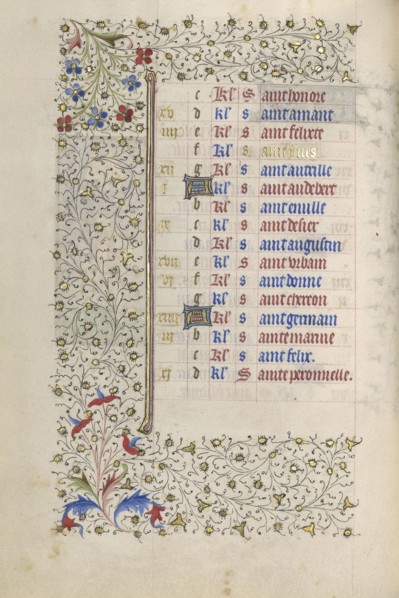 c kl' S aint honore
xv d kl' s aint amant
iiii e kl' s aint felixce
f kl' s aint yues
xii g kl' s aint autaille
i A kl' s aint audebert
b kl' s aint emille
ix c kl' s aint desier
d kl' s aint augustin
xvii e kl' s aint vrbain
vi f kl' s aint donne
g kl' s aint cheron
xiiii A kl' s aint germain
iii b kl' s ainte marine
c kl' s aint felix.
xi d kl' S ainte peronnelle.